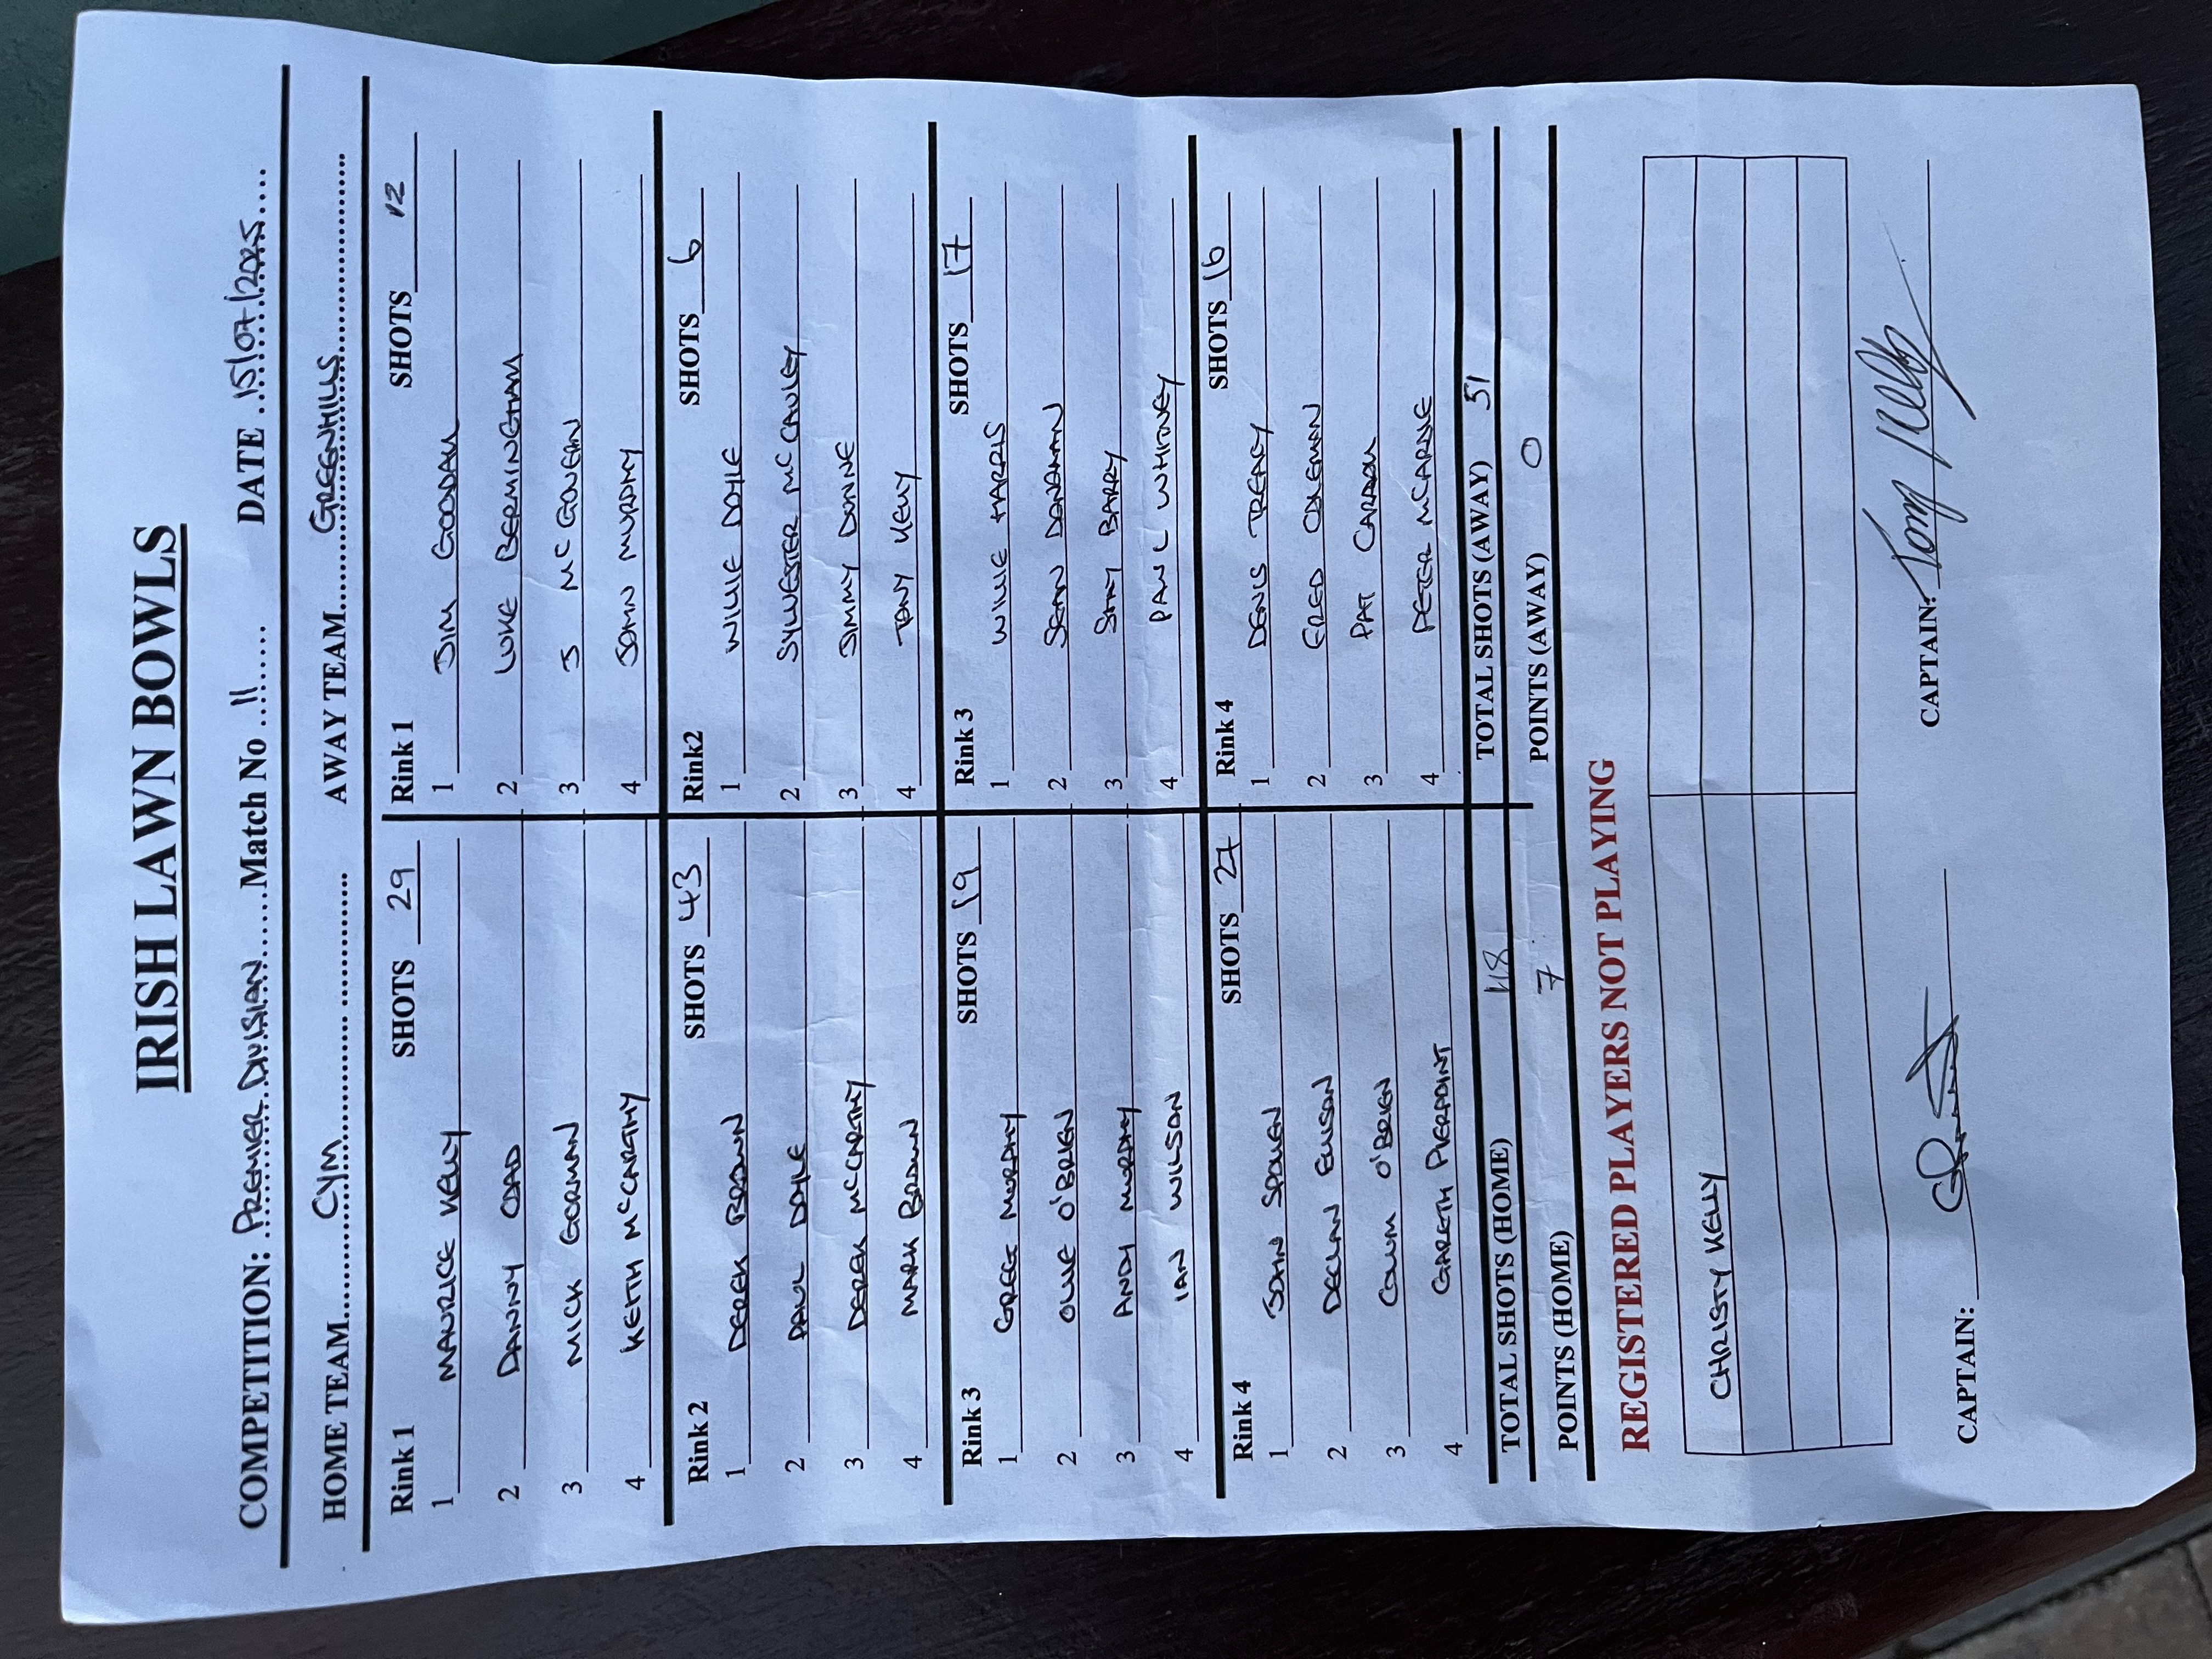 IRISH LAWN BOWLS
COMPETITION: PREMIER DIVISIAN Match No 11 DATE 15/07/2025
HOME TEAM CYM AWAY TEAM GREENHILLS
Rink 1 SHOTS 29 Rink 1 SHOTS 12
1 MAURICE KELLY 1 JIM GOODALL
2 DANNY COAD 2 LUKE BERMINGHAM
3 MICK GORMAN 3 J MC GOVERN
4 KEITH MCCARTHY 4 JOHN MURPHY
Rink 2 SHOTS 43 Rink2 SHOTS 6
1 DEREK BROWN 1 WILLIE DOYLE
2 PAUL DOYLE 2 SYLVESTER MC CAULEY
3 DEREK MCCARTHY 3 JIMMY DUNNE
4 MARK BROWN 4 TONY KELLY
Rink 3 SHOTS 19 Rink 3 SHOTS 17
1 GREGG MURPHY 1 WILLIE HARRIS
2 OLLIE O'BRIEN 2 SEAN
3 ANDY MURPHY 3 BARRY
4 IAN WILSON 4 PAUL WHITNEY
Rink 4 SHOTS 27 Rink 4 SHOTS 16
1 JOHN 1 DENIS TREACY
2 DECLAN ELLISON 2 FRED COLEMAN
3 COLUM O'BRIEN 3 PAT CARROLL
4 GARETH PIERPOINT 4 PETER MCARDLE
TOTAL SHOTS (HOME) 118 TOTAL SHOTS (AWAY) 51
POINTS (HOME) 7 POINTS (AWAY) 0
REGISTERED PLAYERS NOT PLAYING
CHRISTY KELLY
CAPTAIN: CAPTAIN: Tony Kelly